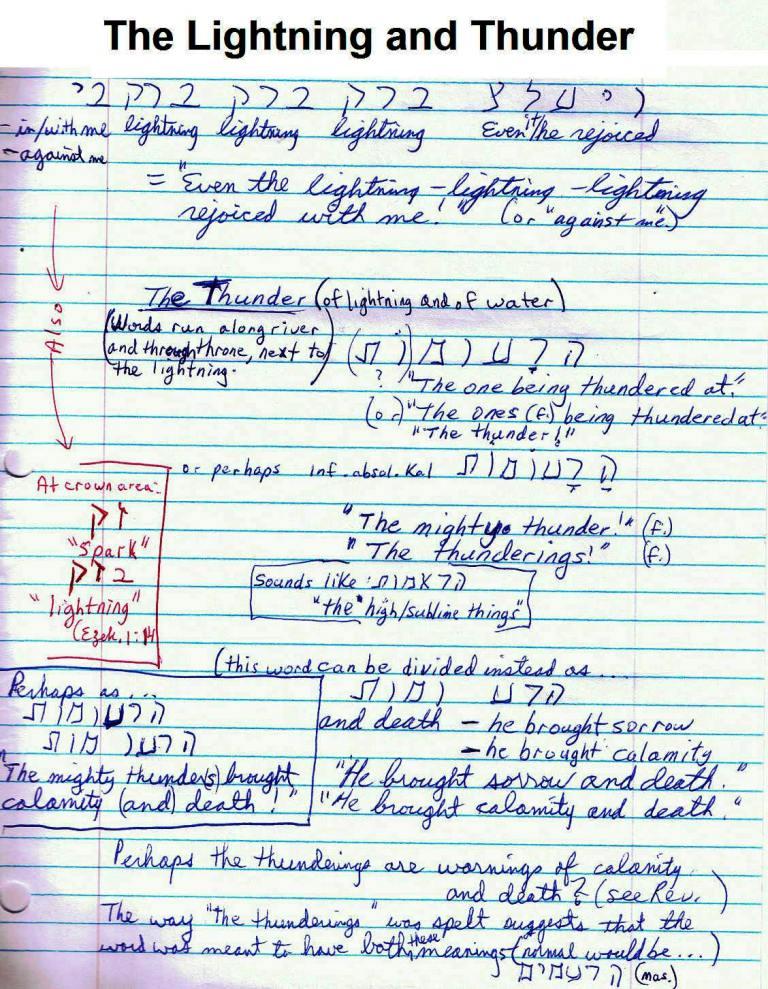 The Lightning and Thunder
ויעלץ ברק ברק ברק בי
- in/with me lightning lightning lightning Even it/he rejoiced
- against me
= "Even the lightning - lightning - lightning
rejoiced with me!" (or "against me")
Also
The Thunder (of lightning and of water)
(Words run along river
and through throne, next to
the lightning.)
הרעומ(ות)
? "The one being thundered at."
(or) "The ones (f.) being thundered at"
"The thunder!"
or perhaps inf. absol. Kal הרעומות
"The mighty thunder!" (f.)
"The thunderings!" (f.)
Sounds like: הראמות
"the" high/sublime things"
At crown area:
זק
"spark"
בזק
"lightning"
(Ezek. 1:14
(this word can be divided instead as...
הרע ומות
and death - he brought sorrow
- he brought calamity
"He brought sorrow and death."
"He brought calamity and death."
Perhaps as...
הרעומות
הרעו מות
"The mighty thunder(s) brought
calamity (and) death!"
Perhaps the thunderings are warnings of calamity
and death? (see Rev.)
The way "the thunderings" was spelt suggests that the
word was meant to have both these meanings (normal would be...)
הרעמים (mas.)